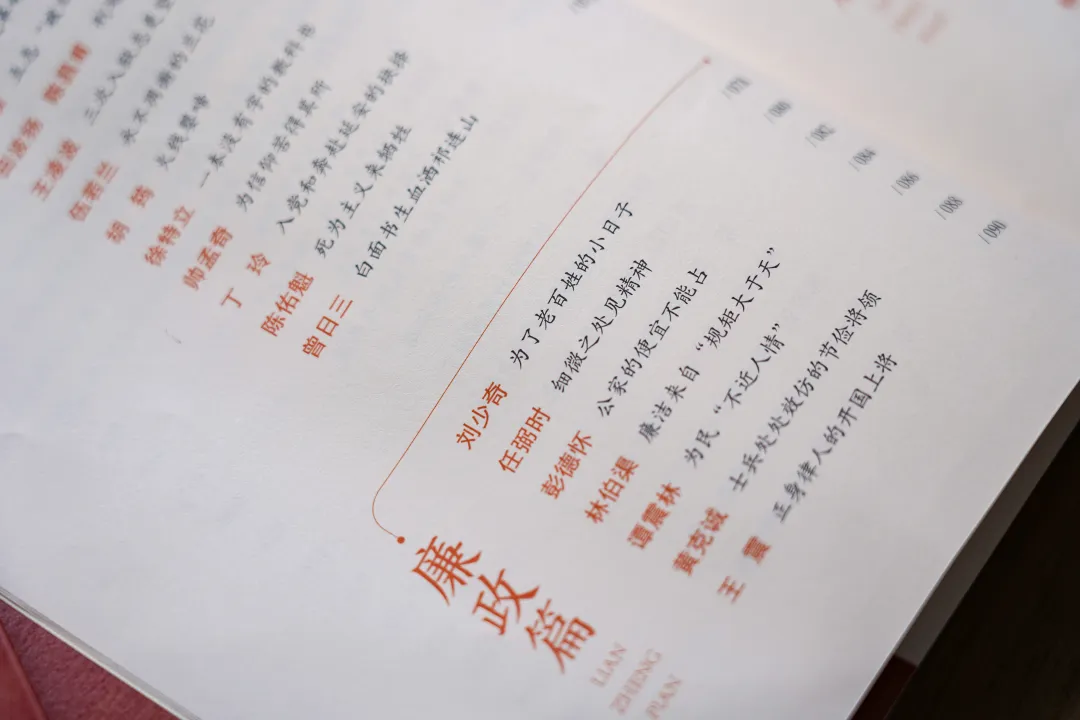 陈昌甫
王凌波 三次入狱志更坚
伍若兰 永不凋谢的兰花
胡筠 火线婴啼
徐特立 一本没有字的教科书
帅孟奇 为信仰苦得其所
丁玲 入党和奔赴延安的抉择
陈佑魁 死为主义来牺牲
曾日三 白面书生血洒祁连山
廉政篇
LIAN ZHENG PIAN
刘少奇 为了老百姓的小日子
任弼时 细微之处见精神
彭德怀 公家的便宜不能占
林伯渠 廉洁来自“规矩大于天”
谭震林 为民“不近人情”
黄克诚 士兵处处效仿的节俭将领
王震 正身律人的开国上将
/080
/082
/084
/086
/088
/090